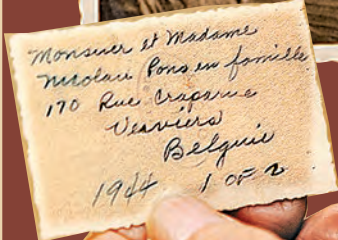 Monsieur et Madame
Nicolau Pons en famille
170 Rue Craparue
Verviers
Belguie
1944 1 OF 2